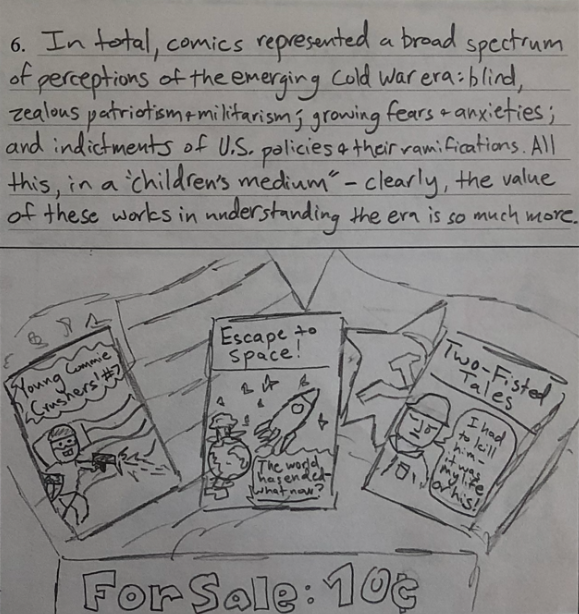 6. In total, comics represented a broad spectrum
of perceptions of the emerging Cold War era: blind,
zealous patriotism + militarism; growing fears + anxieties;
and indictments of U.S. policies & their ramifications. All
this, in a "children's medium" – clearly, the value
of these works in understanding the era is so much more.
Young Commie
Crushers! #7
Escape to
Space!
The world
has ended –
what now?
Two-Fisted
Tales
I had
to kill
him –
it was
my life
or his!
For Sale: 10¢